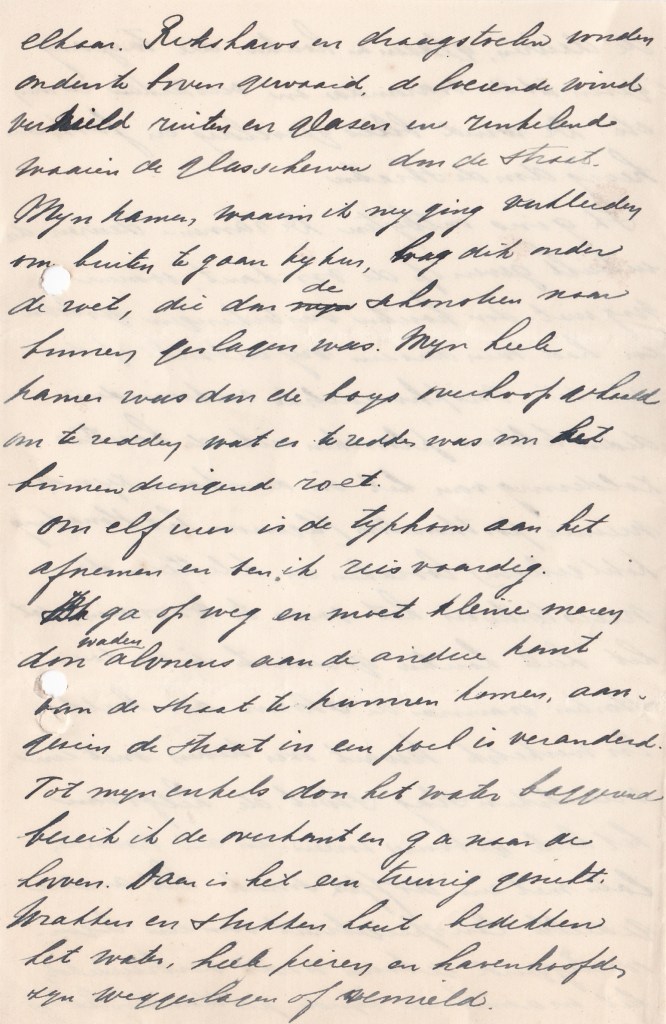 elkaar. Rickshaws en draagstoelen worden
onderste boven gewaaid, de loeiende wind
vernield ruiten en glasen en rinkelend
waaien de glasscherven door de straat.
Mijn kamer, waarin ik mij ging verkleeden
om buiten te gaan kijken, lag dik onder
de roet, die door de schoorsteen naar
binnen geslagen was. Mijn heele
kamer was door de boys overhoop gehaald
om te redden wat er te redden was van het
binnendringend roet.
Om elf uur is de typhoon aan het
afnemen en ben ik reisvaardig.
Ik ga op weg en moet kleine meren
door waden alvorens aan de andere kant
van de straat te kunnen komen, aan-
gezien de straat in een poel is veranderd.
Tot mijn enkels door het water baggerend
bereik ik de overkant en ga naar de
haven. Daar is het een treurig gezicht.
Wrakken en stukken hout bedekken
het water, heele pieren en havenhoofden
zijn weggeslagen of vernield.